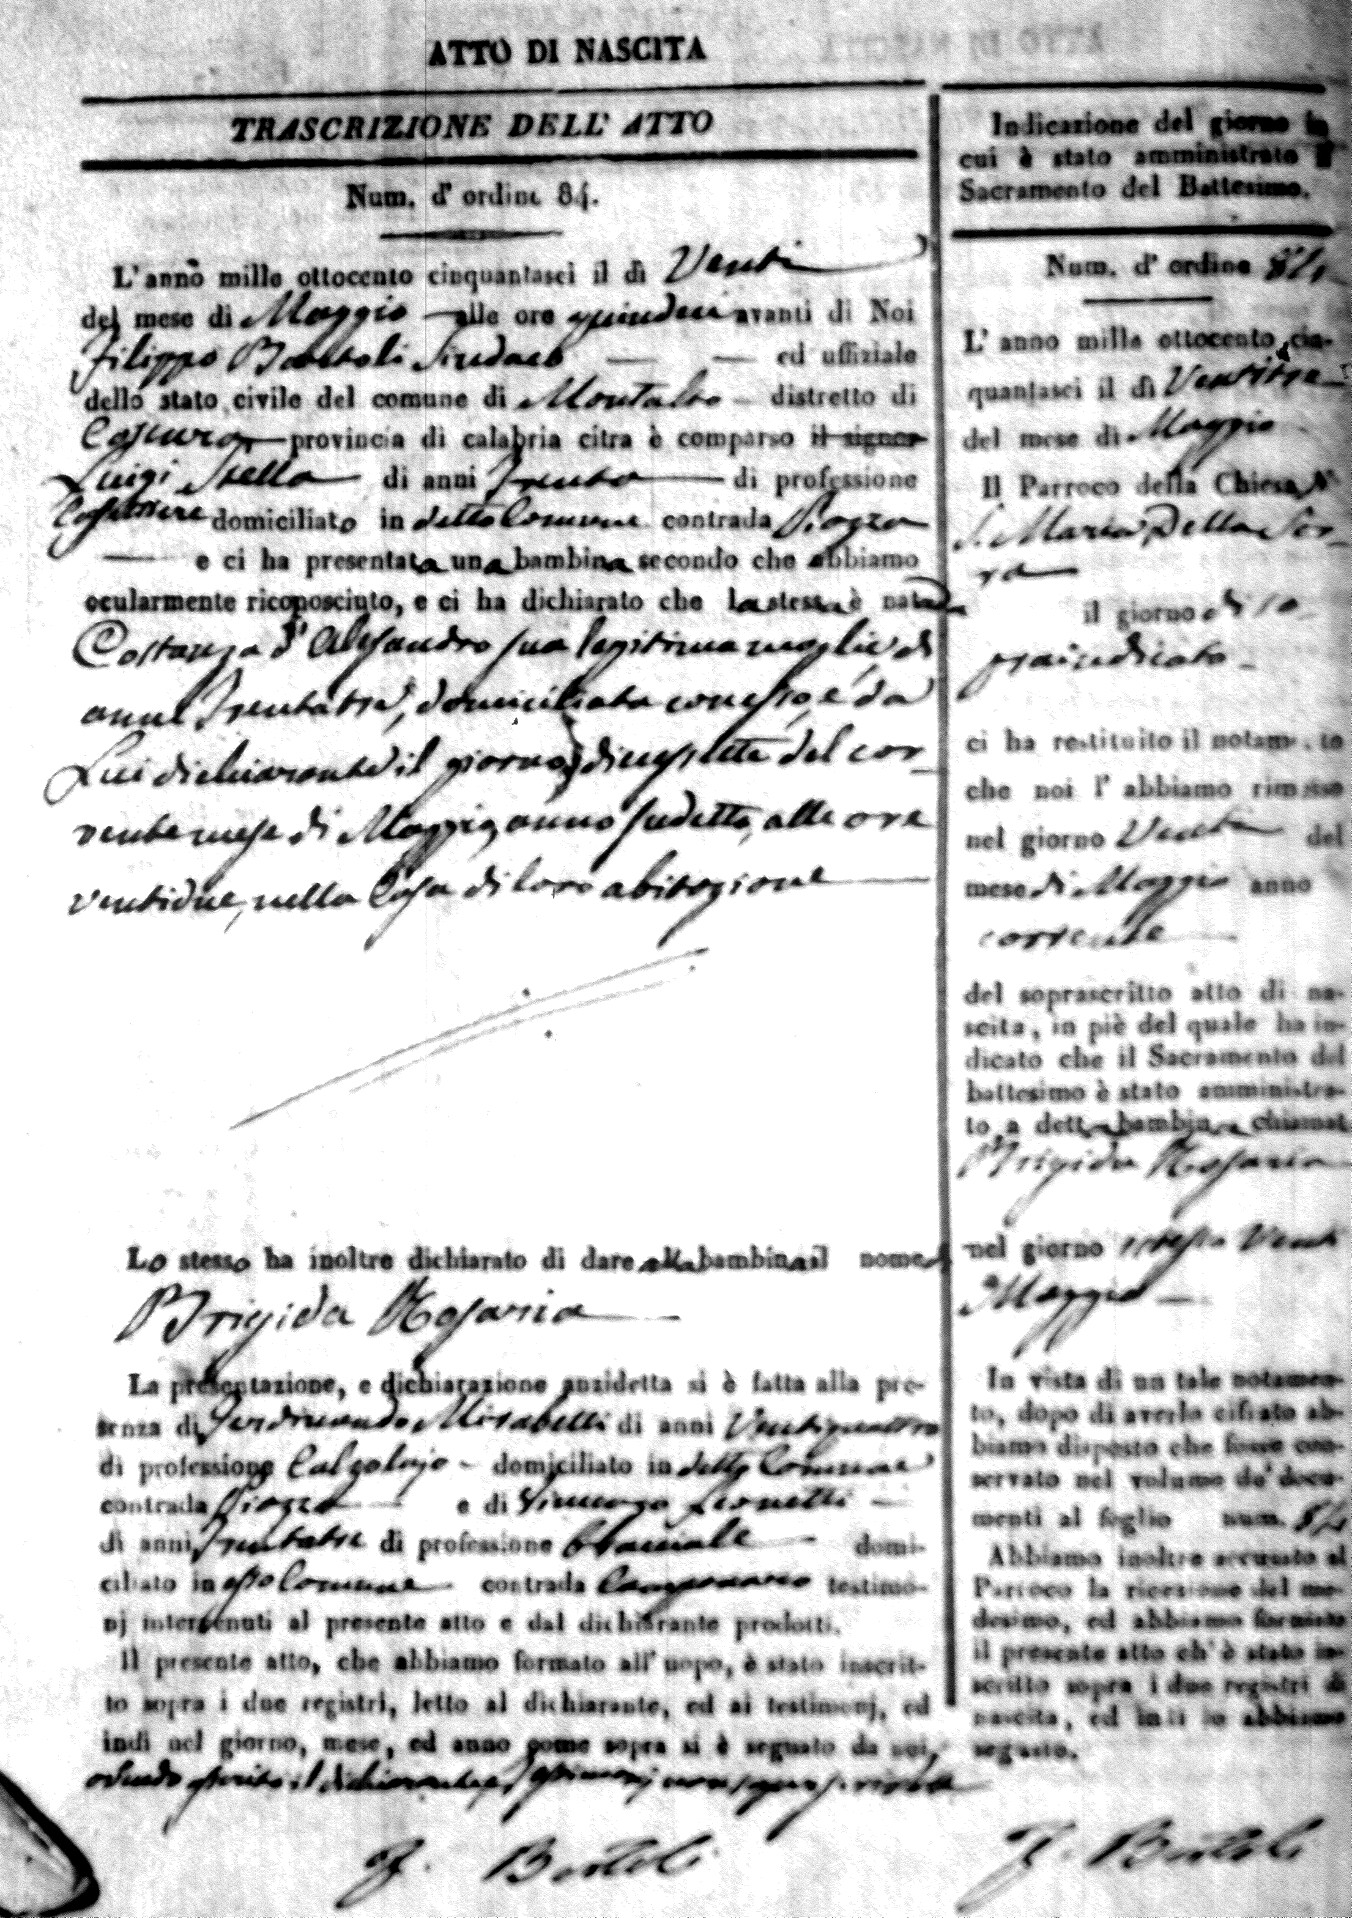 ATTO DI NASCITA
TRASCRIZIONE DELL' ATTO
Num. d' ordine 84.
L'anno mille ottocento cinquantasei il dì Venti
del mese di Maggio alle ore quindeci avanti di Noi
Filippo Bartoli Sindaco ed uffiziale
dello stato civile del comune di Montalto distretto di
Cosenza provincia di calabria citra è comparso il signor
Luigi Stella di anni Trenta di professione
domiciliato in detto Comune contrada Piazza
e ci ha presentata una bambina secondo che abbiamo
ocularmente riconosciuto, e ci ha dichiarato che la stessa è nata da
Costanza d' Alesandro sua legittima moglie di
anni Trentatre, domiciliata con esso, e da
Lui dichiarante il giorno diciassette del cor-
rente mese di Maggio, anno sudetto, alle ore
ventidue, nella Casa di loro abitazione
Lo stesso ha inoltre dichiarato di dare alla bambina il nome di
Brigida Rosaria
La presentazione, e dichiarazione anzidetta si è fatta alla pre-
senza di Ferdinando Mirabelli di anni Ventiquattro
di professione Calzolajo domiciliato in detto Comune
contrada Piazza e di Vincenzo Leonetti
di anni Trentatre di professione domi-
ciliato in esso Comune contrada testimo-
nj intervenuti al presente atto e dal dichiarante prodotti.
Il presente atto, che abbiamo formato all' uopo, è stato inscrit-
to sopra i due registri, letto al dichiarante, ed ai testimonj, ed
indi nel giorno, mese, ed anno come sopra si è segnato da noi,
avendo asserito il dichiarante, e Testimonj non saper scrivere
F. Bartoli
Indicazione del giorno in
cui è stato amministrato il
Sacramento del Battesimo.
Num. d' ordine 84
L' anno mille ottocento cin-
quantasei il dì Ventitre
del mese di Maggio
Il Parroco della Chiesa di
S. Maria Della Ser-
ra
il giorno di so-
praindicato
ci ha restituito il notamento
che noi l' abbiamo rimesso
nel giorno Venti del
mese di Maggio anno
corrente
del soprascritto atto di na-
scita, in piè del quale ha in-
dicato che il Sacramento del
battesimo è stato amministra-
to a detta bambina chiamat
Brigida Rosaria
nel giorno istesso Venti
Maggio
In vista di un tale notamen-
to, dopo di averlo cifrato ab-
biamo disposto che fosse con-
servato nel volume de' docu-
menti al foglio num. 84
Abbiamo inoltre accusato al
Parroco la ricezione del me-
desimo, ed abbiamo formato
il presente atto ch' è stato in-
scritto sopra i due registri di
nascita, ed indi lo abbiamo
segnato.
F. Bartoli